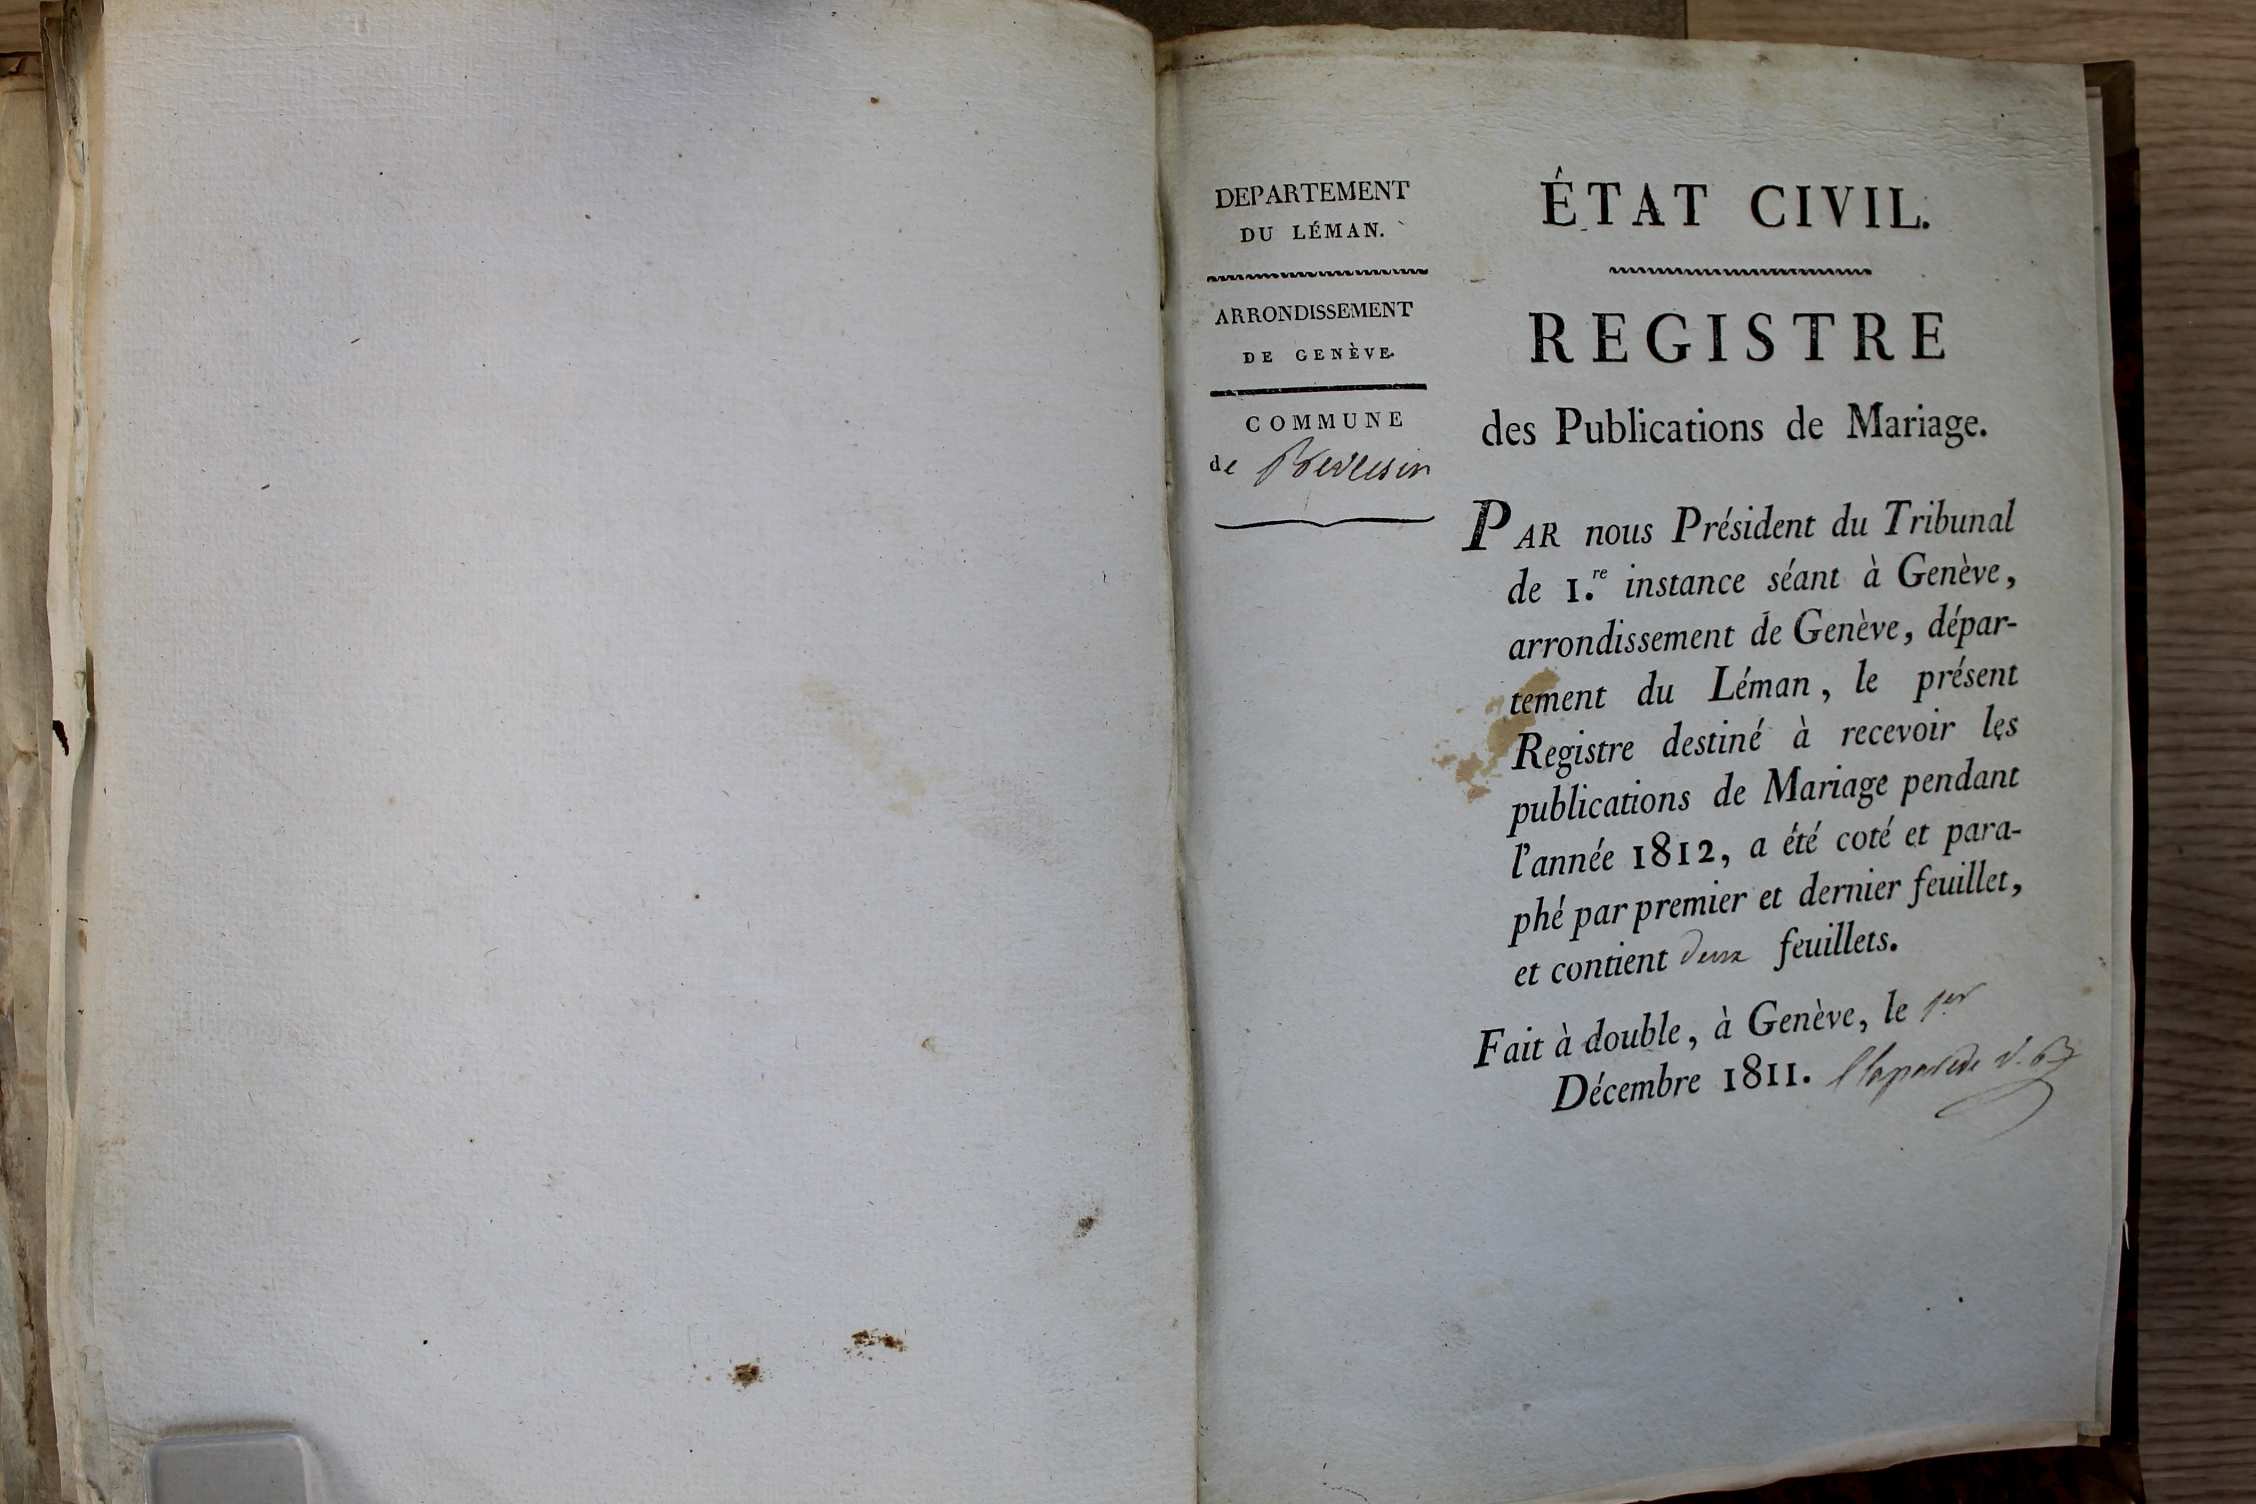 DEPARTEMENT
DU LÉMAN.
ARRONDISSEMENT
DE GENÈVE.
COMMUNE
de Prevessin
ÉTAT CIVIL.
REGISTRE
des Publications de Mariage.
PAR nous Président du Tribunal
de 1.re instance séant à Genève,
arrondissement de Genève, dépar-
tement du Léman, le présent
Registre destiné à recevoir les
publications de Mariage pendant
l'année 1812, a été coté et para-
phé par premier et dernier feuillet,
et contient deux feuillets.
Fait à double, à Genève, le 1er
Décembre 1811. Claparede